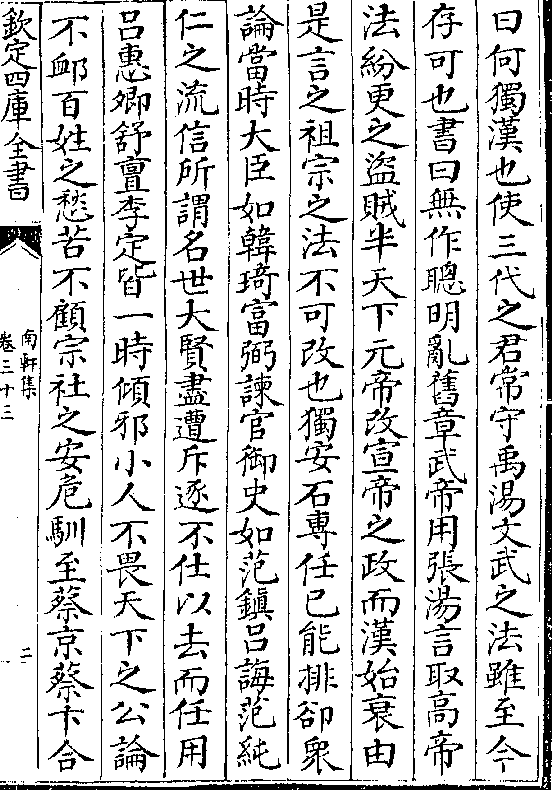 曰何獨漢也使三代之君常守禹湯文武之法雖至今
存可也書曰無作聰明亂舊章武帝用張湯言取高帝
法紛更之盜賊半天下元帝改宣帝之政而漢始衰由
是言之祖宗之法不可改也獨安石專任己能排卻衆
論當時大臣如韓琦富弼諫官御史如范鎮呂誨范純
仁之流信所謂名世大賢盡遭斥逐不仕以去而任用
呂惠卿舒亶李定皆一時傾邪小人不畏天下之公論
不䘏百姓之愁苦不顧宗社之安危馴至蔡京蔡卞合
欽定四庫全書
南軒集
卷三十三
二